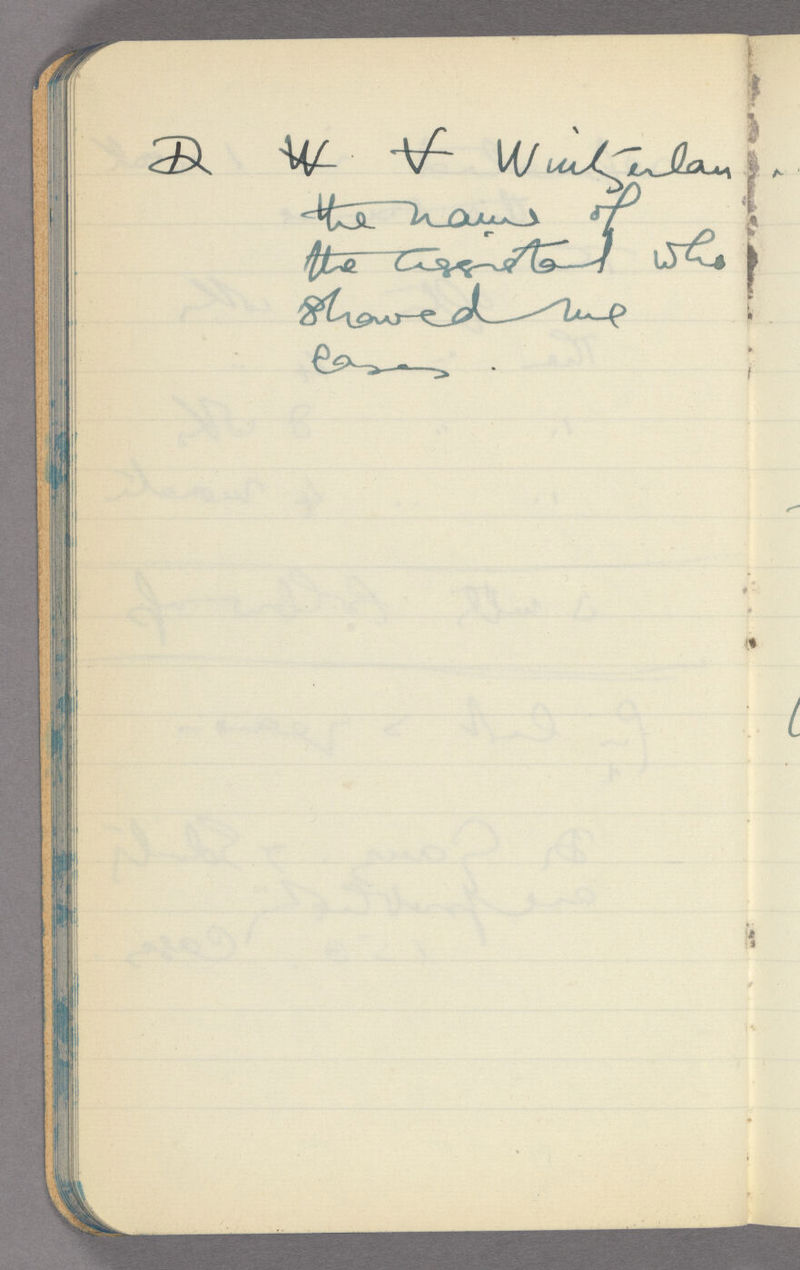 Dr W V Wintzerlan
the name of
the assistant who
showed me
cases .